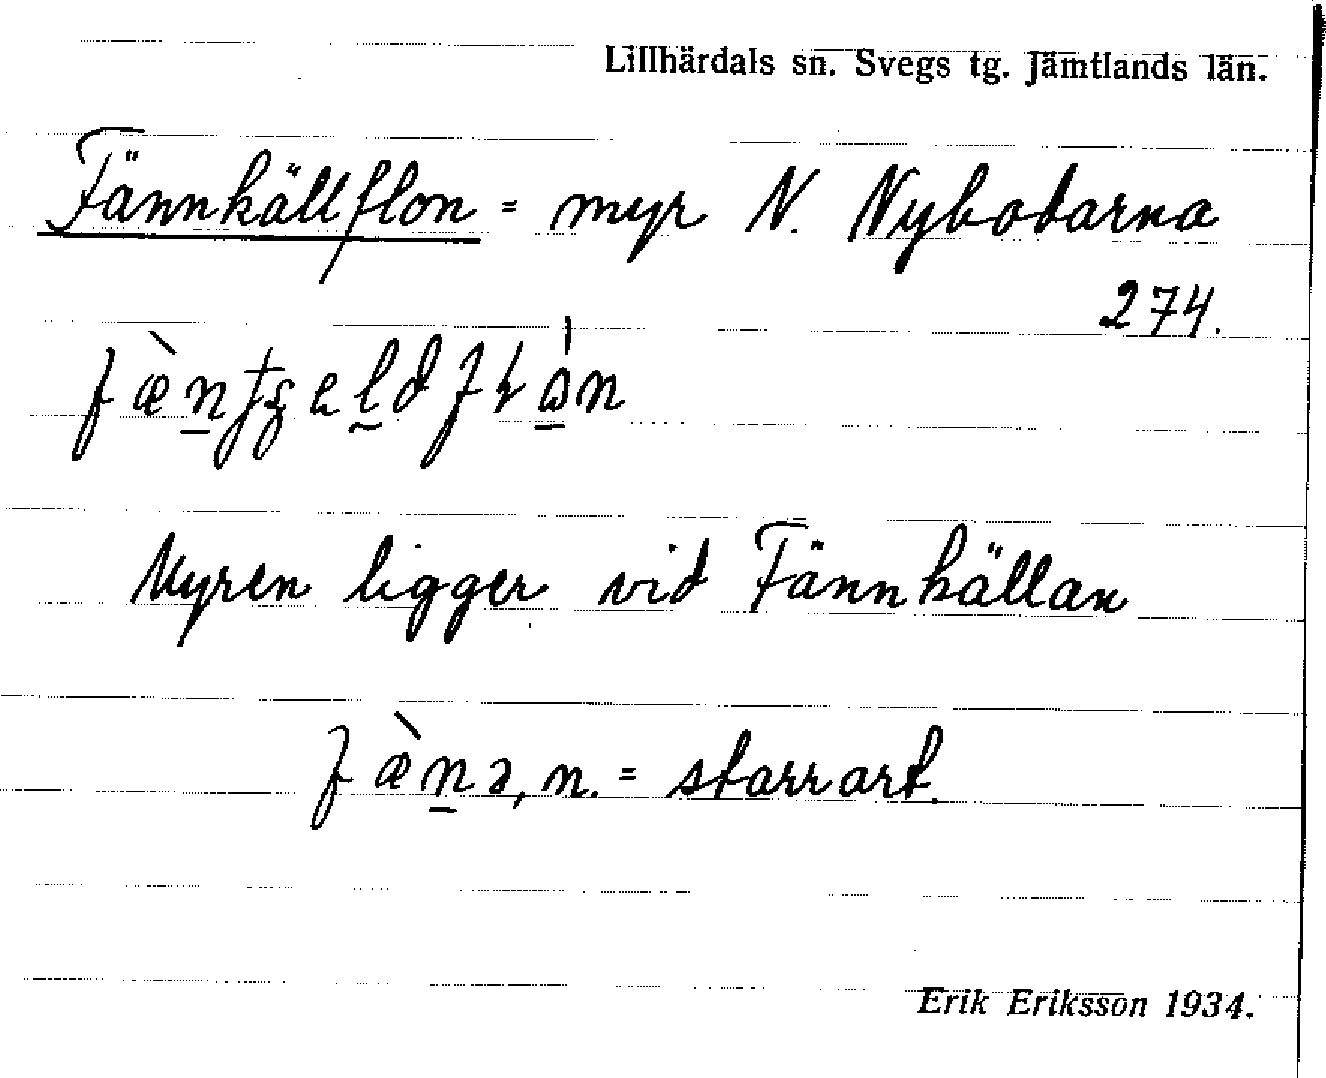 Lillhärdals sn. Svegs tg. Jämtlands län.
Fännkällflon = myr N. Nybodarna
274.
Myren ligger vid Fännkällan
fæ̀n̲ə, n. = starrart.
Erik Eriksson 1934.